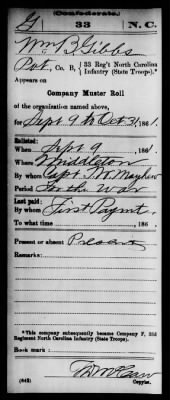 (Confederate.)
G 33 N. C.
Wm B Gibbs
Pvt, Co. B, 33 Reg't North Carolina Infantry (State Troops).*
Appears on
Company Muster Roll
of the organization named above,
for Sept 9 to Oct 31, 1861.
Enlisted:
When Sept 9, 1861.
Where Middleton
By whom Capt. Mayhew
Period For the War
Last paid:
By whom First Paymt.
To what time , 186 .
Present or absent Present
Remarks:
*This company subsequently became Company F, 33d Regiment North Carolina Infantry (State Troops).
Book mark:
(642)
Copyist.